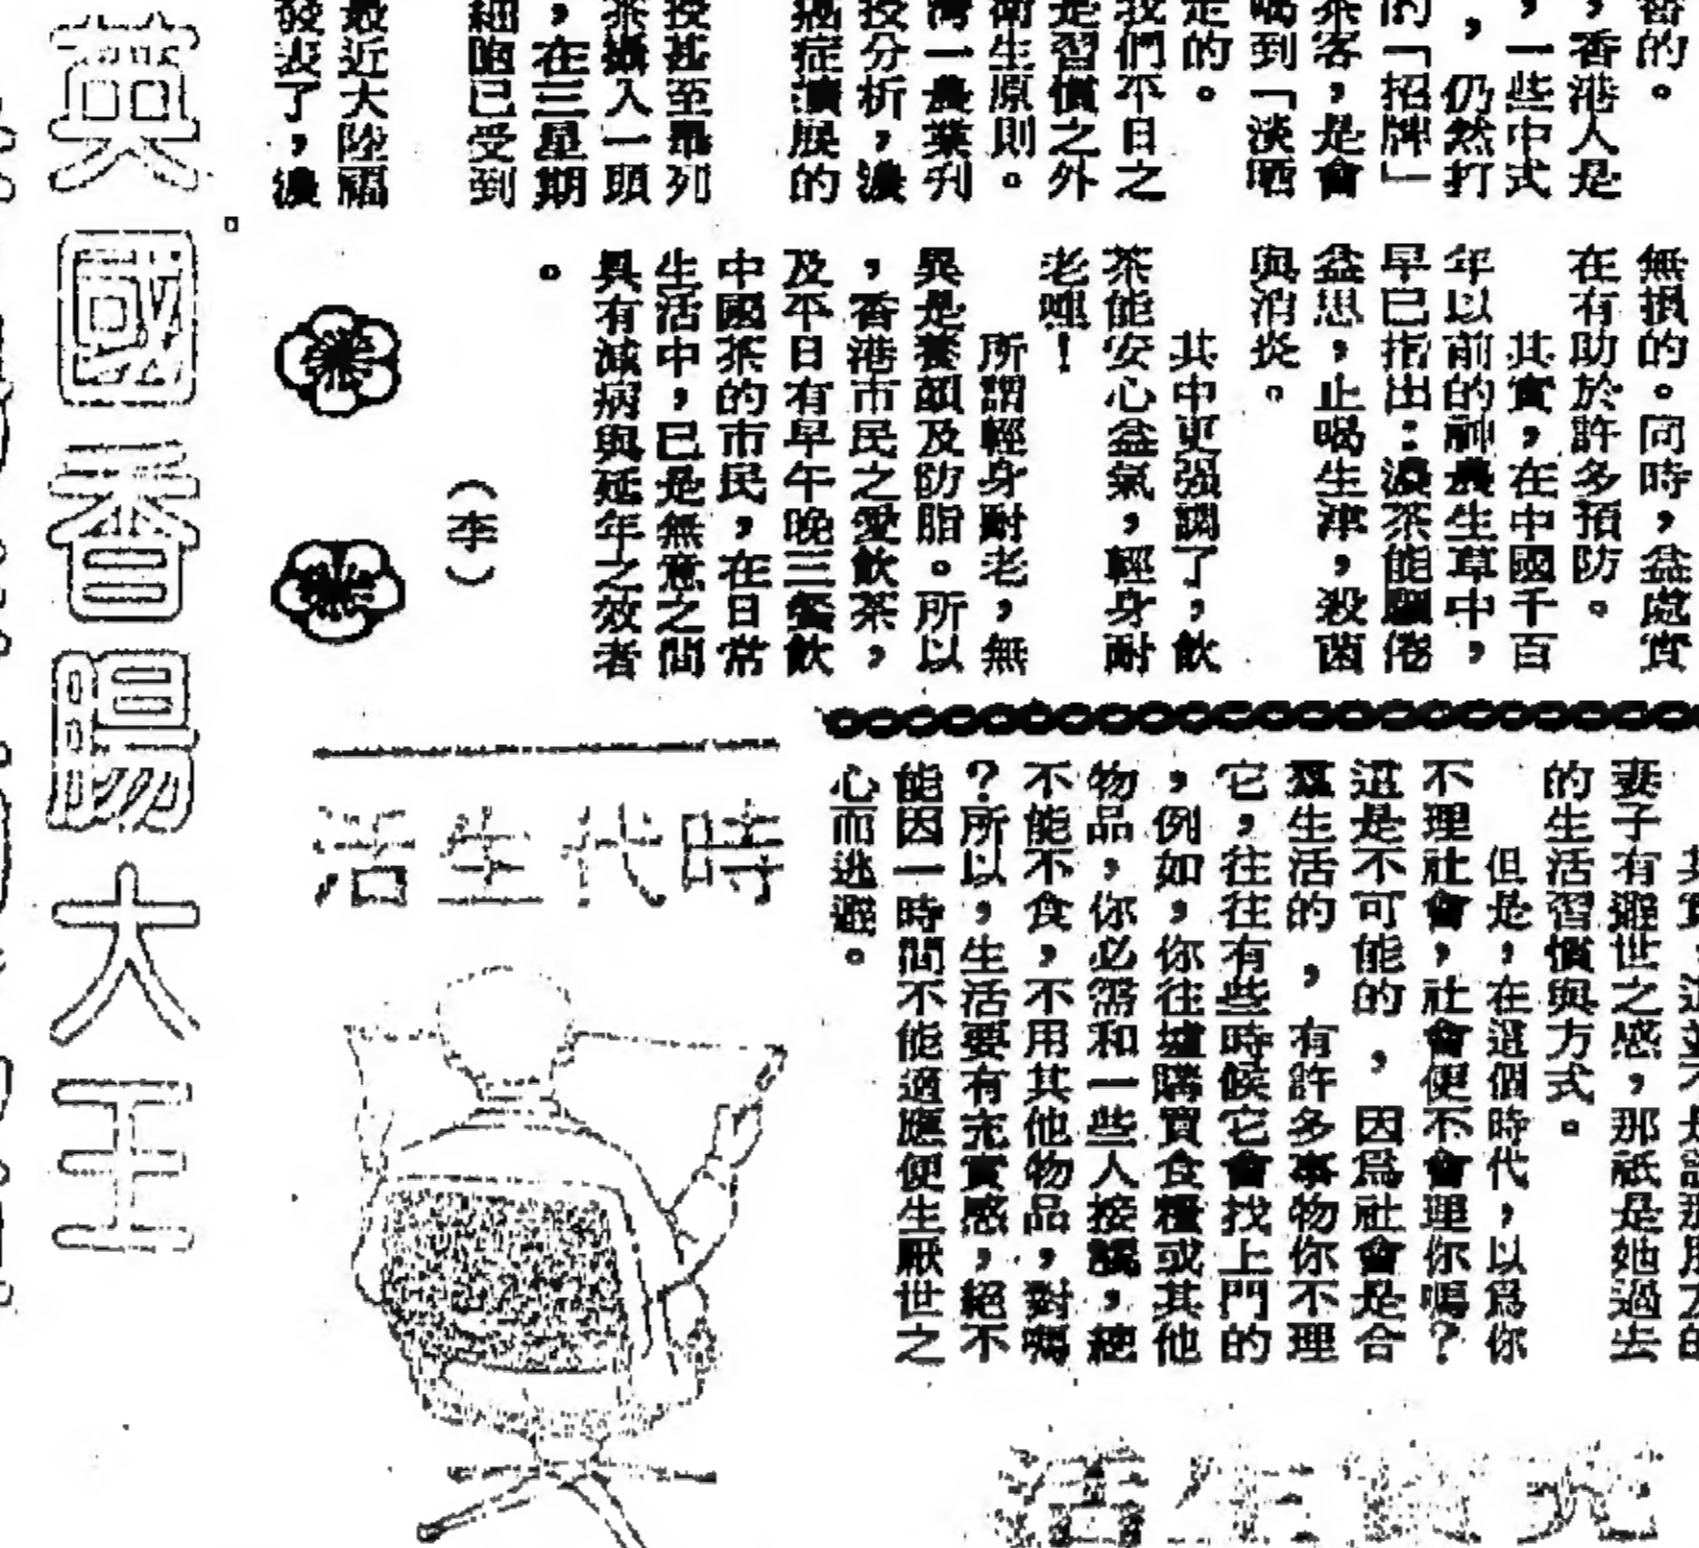 ，香港人是
，一些中式
，仍然打
的「招牌」
茶客，是會
喝到「淡晒
走的。
我們不日之
是習慣之外
衛生原則。
灣一農業刋
授分析，濃
癌症擴展的
授甚至舉列
茶攝入一頭
，在三星期
細胞已受到
最近大陸福
發表了，濃
無損的。同時，益處實
在有助於許多預防。
其實，在中國千百
年以前的神農生草中，
早已指出：濃茶能驅倦
益思，止喝生津，殺菌
與消炎。
其中更强調了，飲
茶能安心益氣，輕身耐
老哩！
所謂輕身耐老，無
異是養顏及防脂。所以
，香港市民之愛飲茶，
及平日有早午晚三餐飲
中國茶的市民，在日常
生活中，已是無意之間
具有減病與延年之效者
。
（李）
妻子有避世之感，那祇是她過去
的生活習慣與方式。
但是，在這個時代，以爲你
不理社會，社會便不會理你嗎？
這是不可能的，因爲社會是合
羣生活的，有許多事物你不理
它，往往有些時候它會找上門的
，例如，你往墟購買食糧或其他
物品，你必需和一些人接觸，總
不能不食，不用其他物品，對嗎
？所以，生活要有充實感，絕不
能因一時間不能適應便生厭世之
心而逃避。
時代生活
英國香腸大王